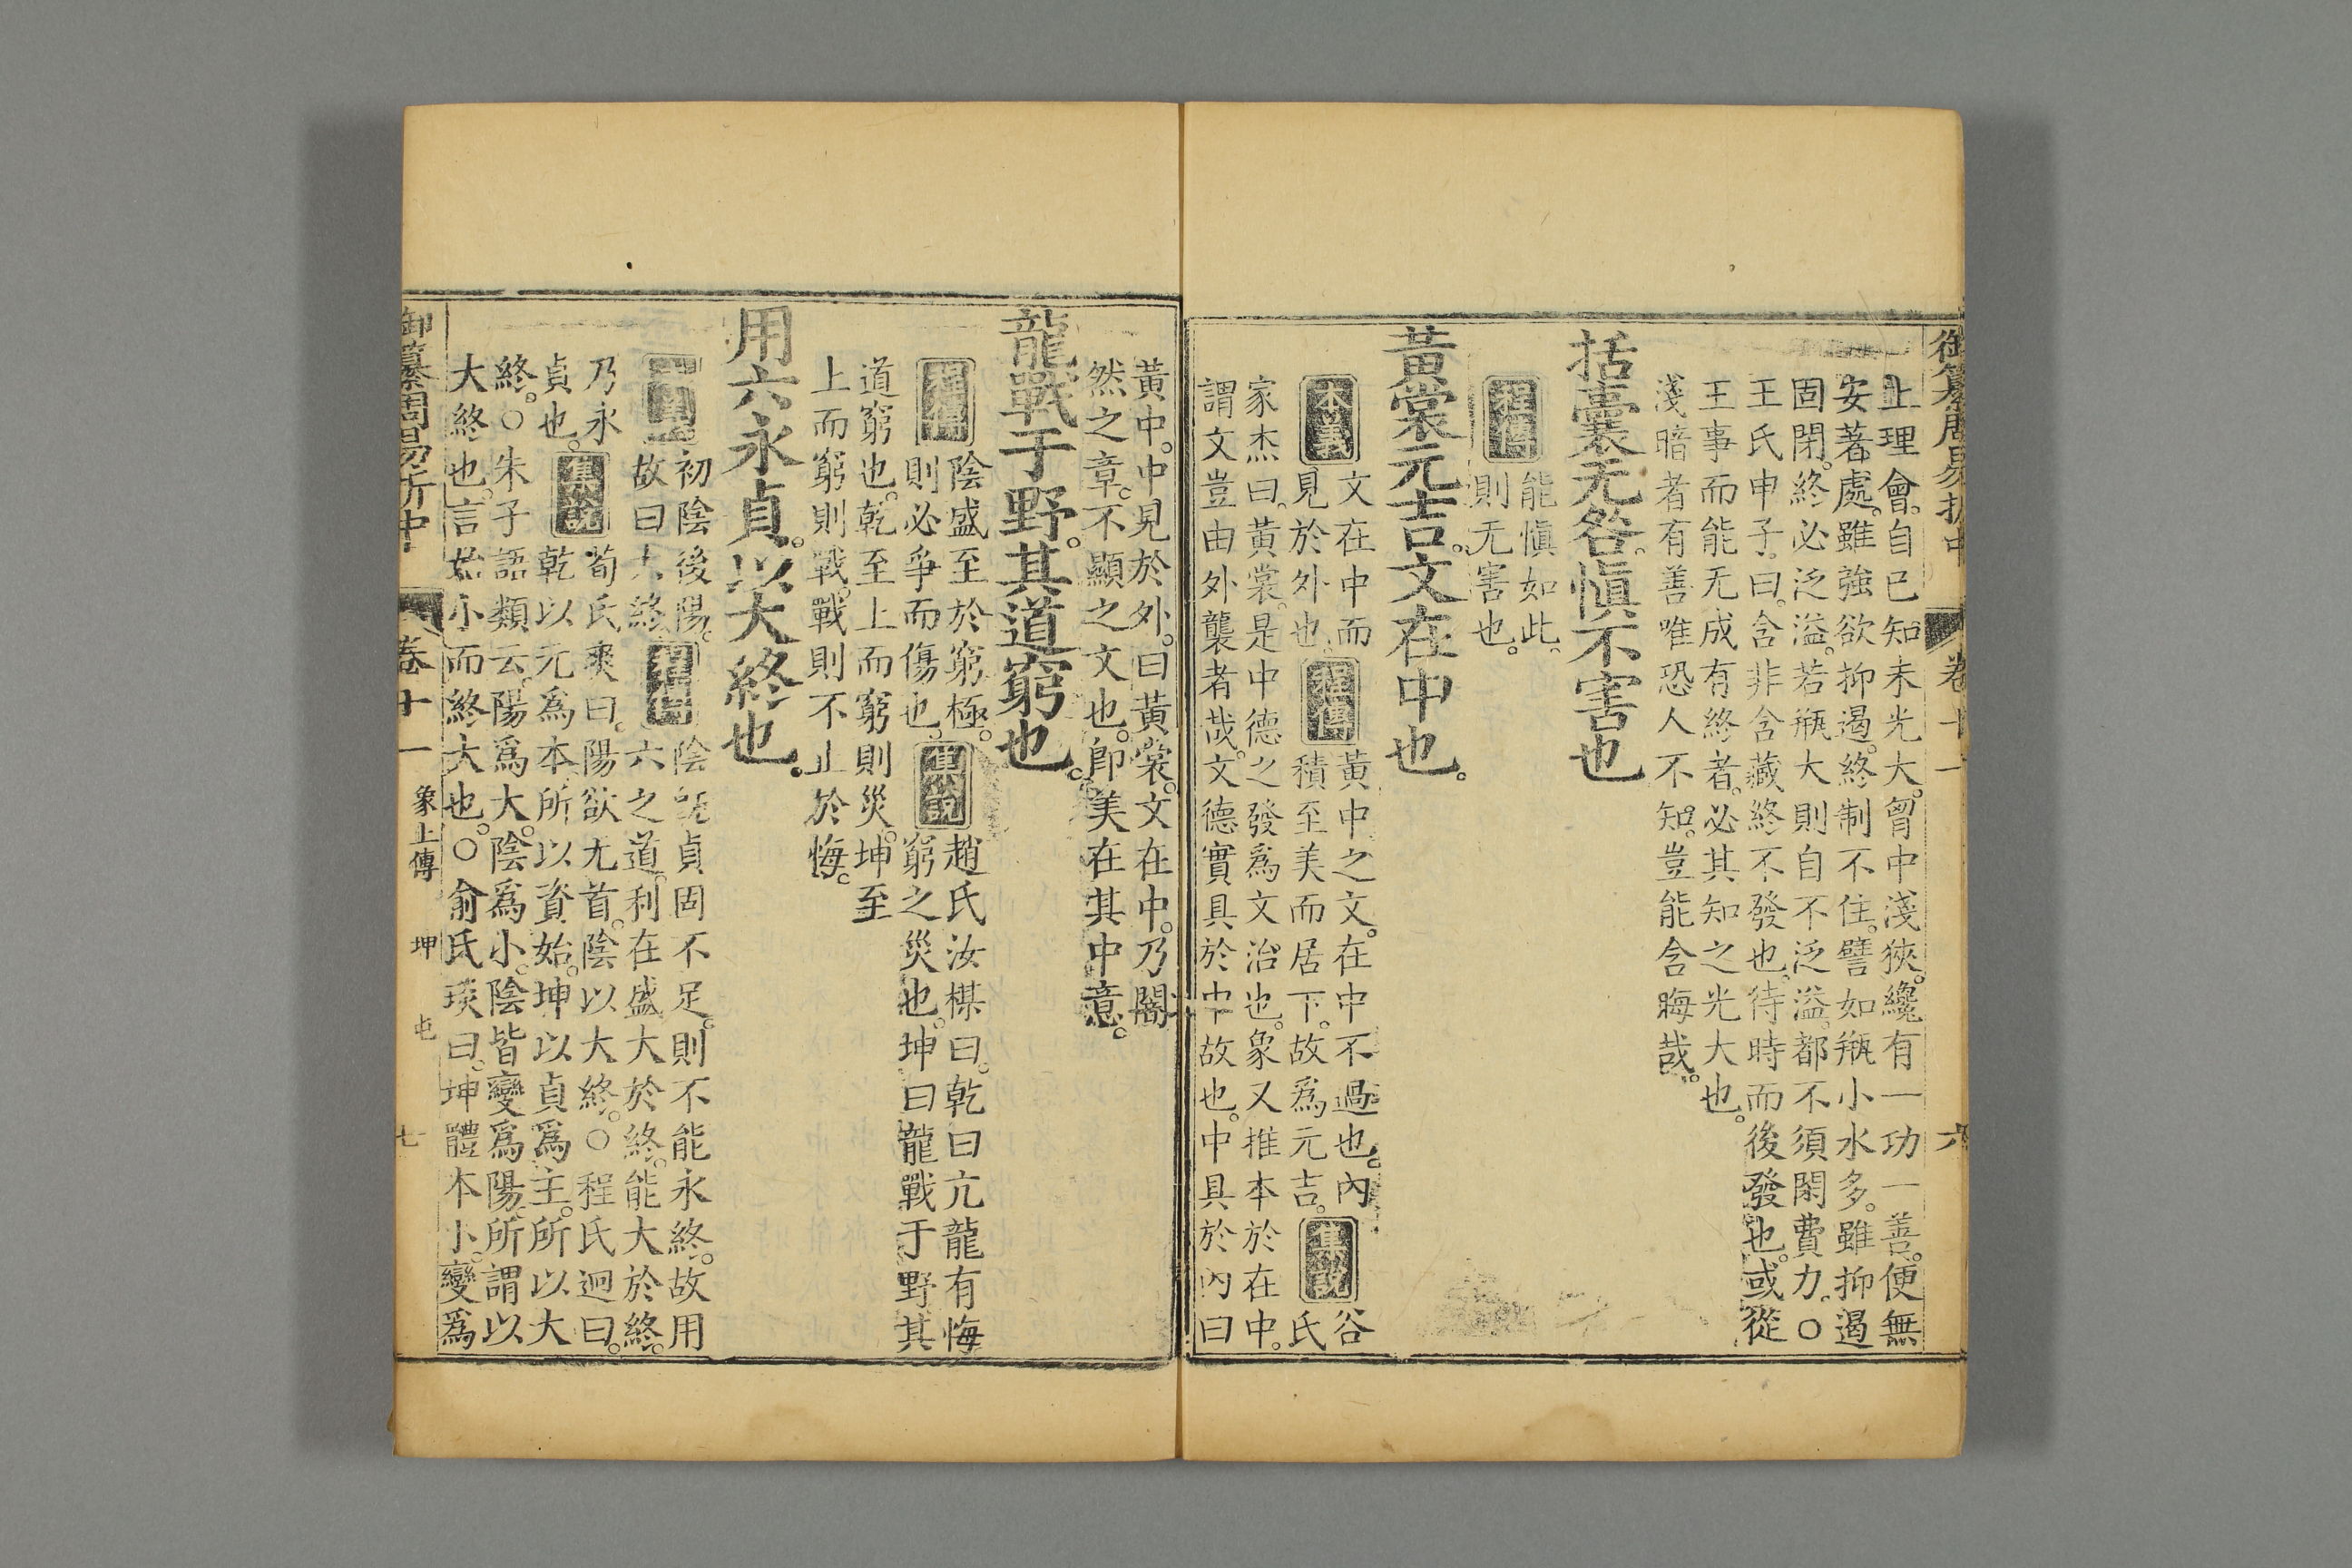 御纂周易折中 卷十一 六
上理會。自已知未光大。胷中淺狹。纔有一功一善。便無
安著處。雖強欲抑遏。終制不住。譬如瓶小水多。雖抑遏
固閉。終必泛溢。若瓶大則自不泛溢。都不須閑費力。○
王氏申子曰。含非含藏終不發也。待時而後發也。或從
王事而能无成有終者。必其知之光大也。
淺暗者有善唯恐人不知。豈能含晦哉。
括囊无咎。愼不害也
程傳 能愼如此。
則无害也。
黃裳元吉。文在中也。
本義 文在中而
見於外也。
程傳 黃中之文。在中不過也。內
積至美而居下。故爲元吉。
集說 谷
氏
家杰曰。黃裳。是中德之發爲文治也。象又推本於在中。
謂文豈由外襲者哉。文德實具於中故也。中具於內曰
黃中。中見於外。曰黃裳。文在中。乃闇
然之章。不顯之文也。卽美在其中意。
龍戰于野。其道窮也。
程傳 陰盛至於窮極。
則必爭而傷也。
集說 趙氏汝楳曰。乾曰亢龍有悔
窮之災也。坤曰龍戰于野其
道窮也。乾至上而窮則災。坤至
上而窮則戰。戰則不止於悔。
用六永貞。以大終也。
本義 初陰後陽。
故曰大終。
程傳 陰旣貞固不足。則不能永終。故用
六之道。利在盛大於終。能大於終。
乃永
貞也。
集說 荀氏爽曰。陽欲无首。陰以大終。○程氏迥曰。
乾以元爲本。所以資始。坤以貞爲主。所以大
終。○朱子語類云。陽爲大。陰爲小。陰皆變爲陽。所謂以
大終也。言始小而終大也。○俞氏琰曰。坤體本小。變爲
御纂周易折中 卷十一 象上傳 坤 屯 七